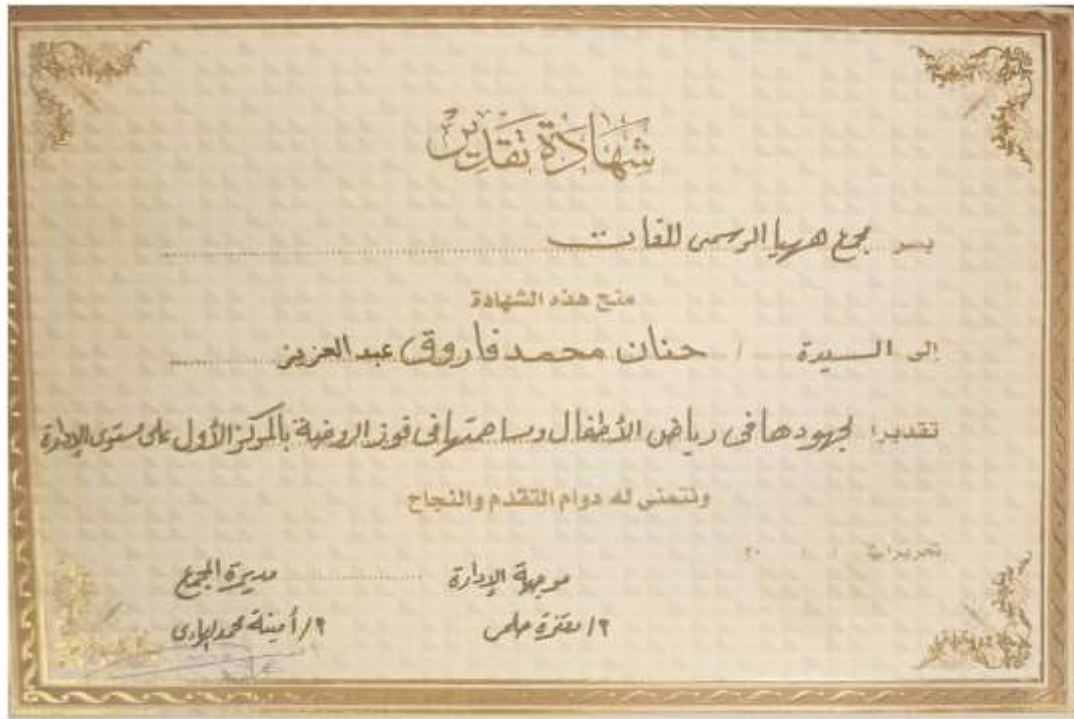 شهادة تقدير
يسر مجمع ههيا الرسمى للغات
منح هذه الشهادة
إلى السيدة / حنان محمد فاروق عبد العزيز
تقديرا لجهودها فى رياض الأطفال ومساهمتها فى فوز الروضة بالمركز الأول على مستوى الإدارة
ونتمنى له دوام التقدم والنجاح
تحريرا فى / / ٢٠
موجهة الإدارة مديرة المجمع
أ/ معتزة حلمى أ/ أمينة محمد